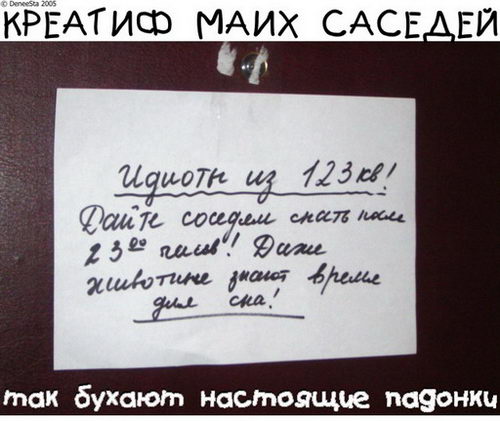 © DeneeSta 2005
КРЕАТИФ МАИХ САСЕДЕЙ
Идиоты из 123 кв!
Дайте соседям спать после
23⁰⁰ часов! Даже
животные знают время
для сна!
так бухают настоящие падонки